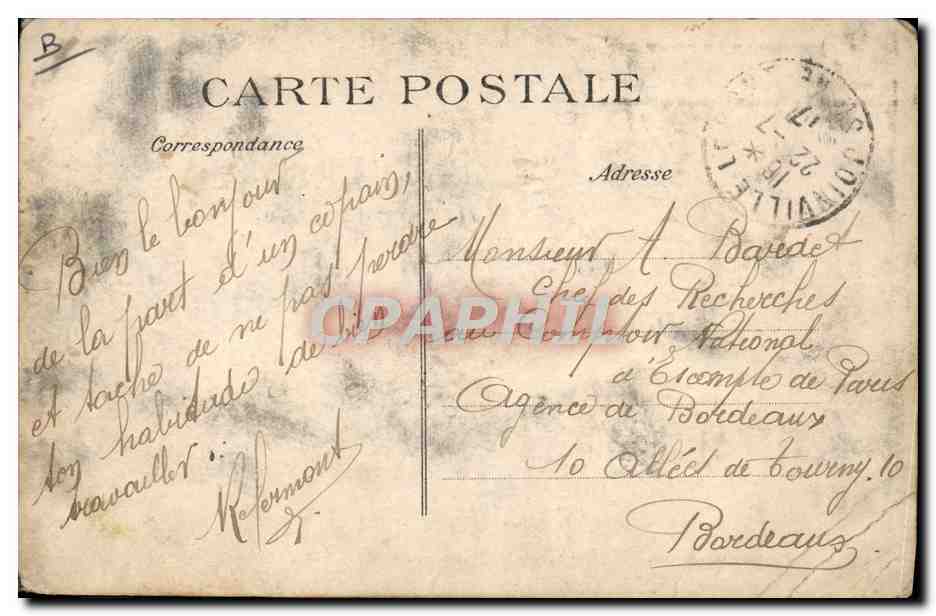 B
CARTE POSTALE
Correspondance
Bien le bonjour
de la part d'un copain,
et tache de ne pas perdre
ton habitude de bien
travailler.
Adresse
Monsieur A. Bardet
Chef des Recherches
au Comptoir National
d'Escompte de Paris
Agence de Bordeaux
10 Allées de Tourny. 10
Bordeaux
JOINVILLE LE
16
22 7
17
CPAPHIL